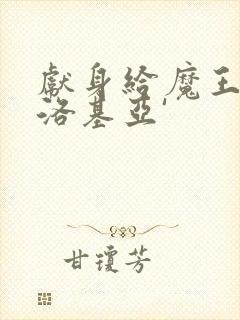 獻身給魔王
洛基亞'
甘瓊芳